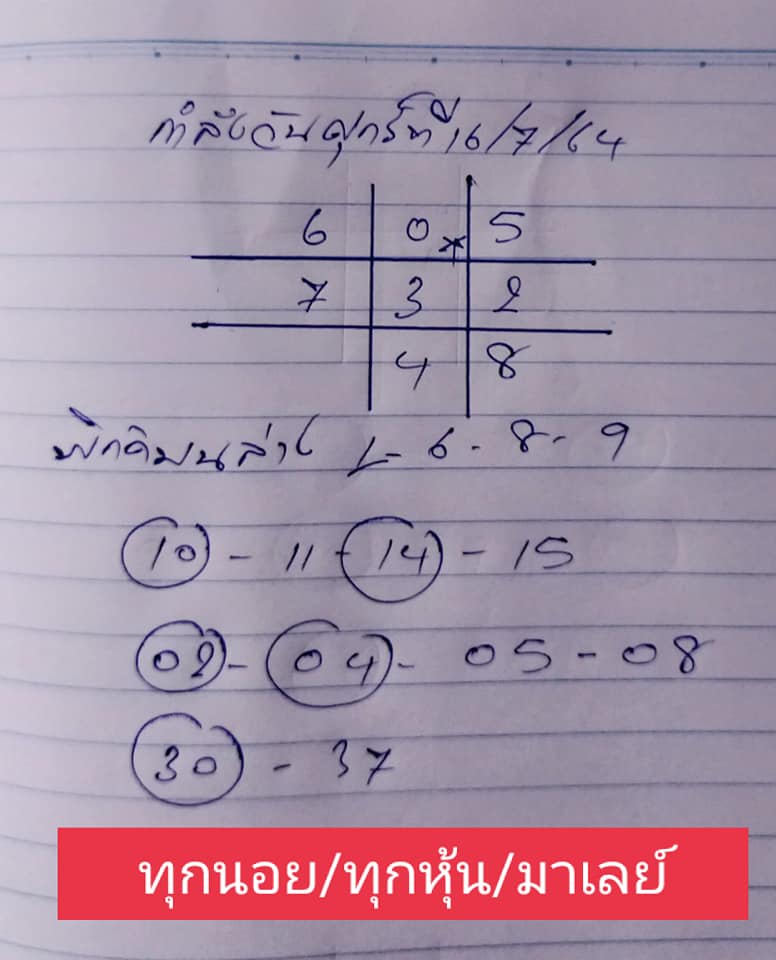 กำลังวันศุกร์ที่ 16/7/64
6 0* 5
7 3 2
4 8
พิกัดบนล่าง 1-6-8-9
10-11-14-15
02-04-05-08
30-37
ทุกนอย/ทุกหุ้น/มาเลย์